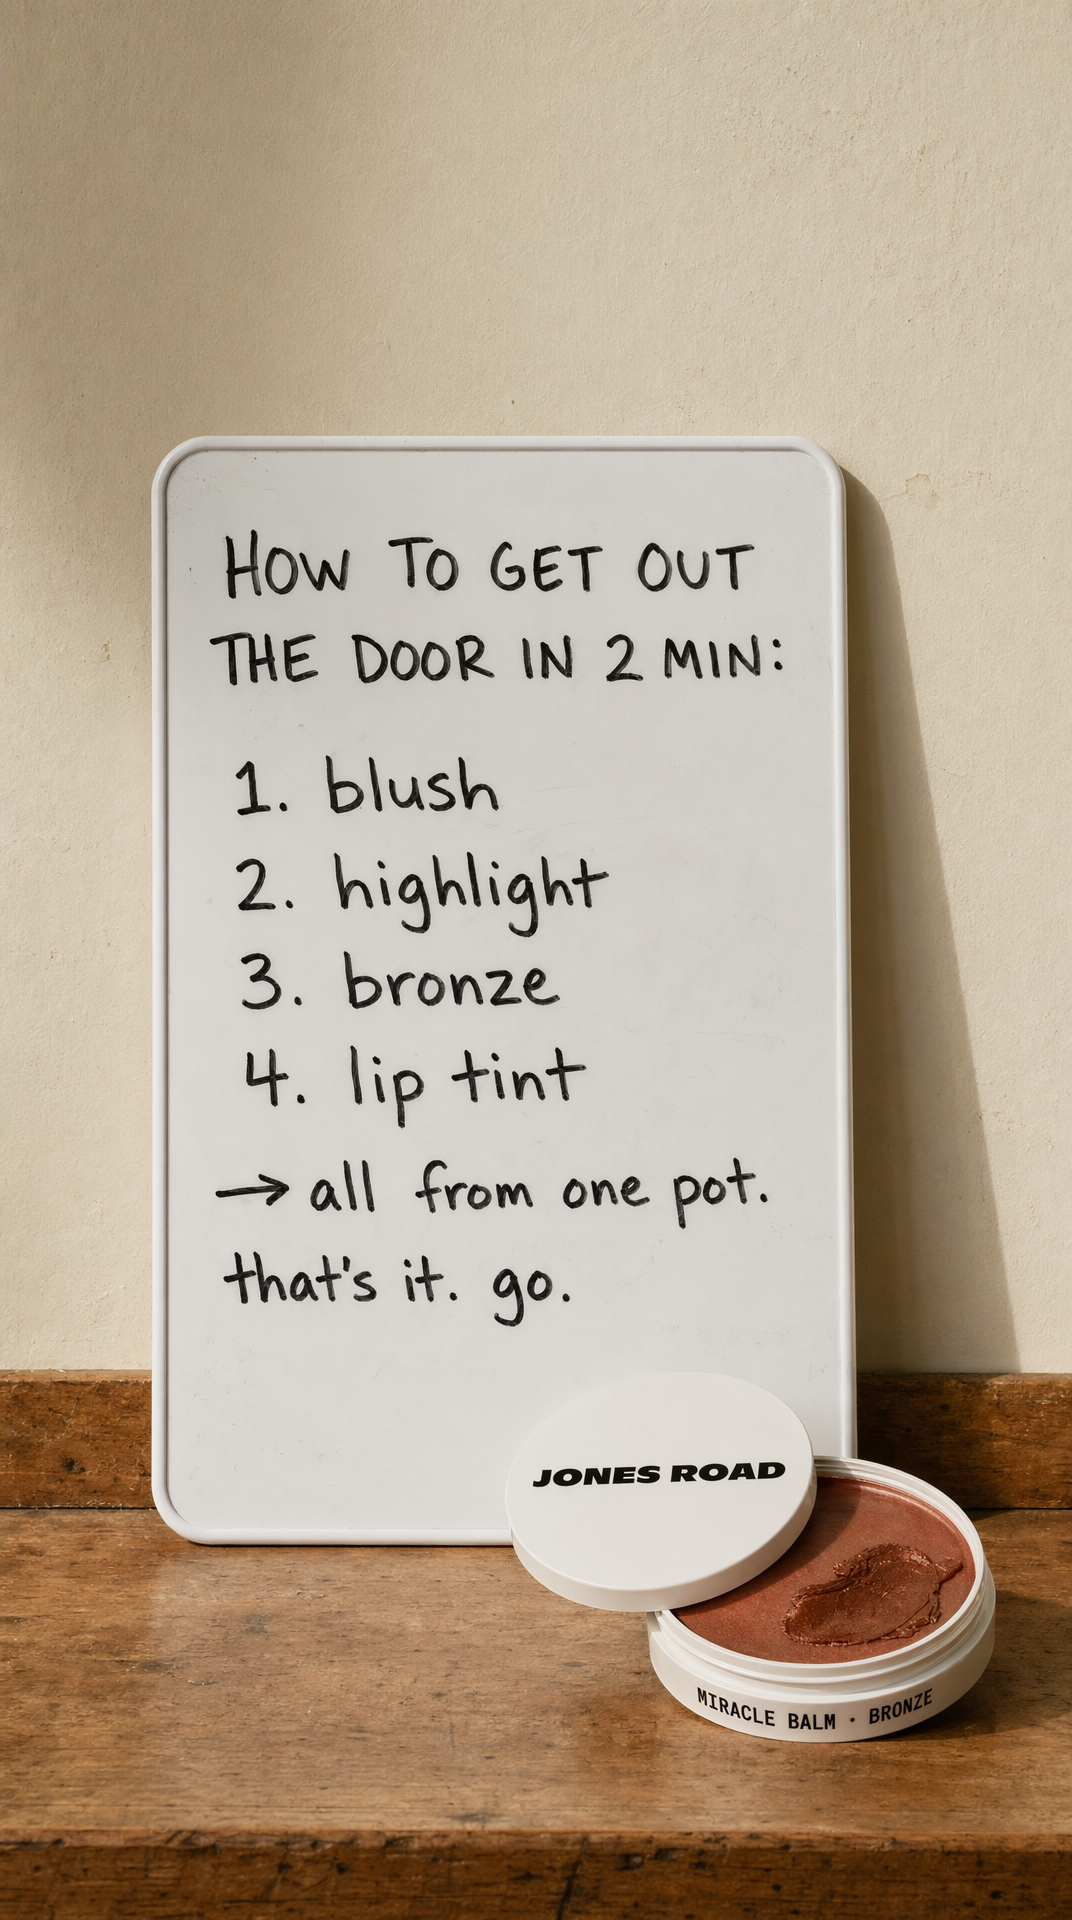 HOW TO GET OUT
THE DOOR IN 2 MIN:
1. blush
2. highlight
3. bronze
4. lip tint
→ all from one pot.
that's it. go.
JONES ROAD
MIRACLE BALM · BRONZE